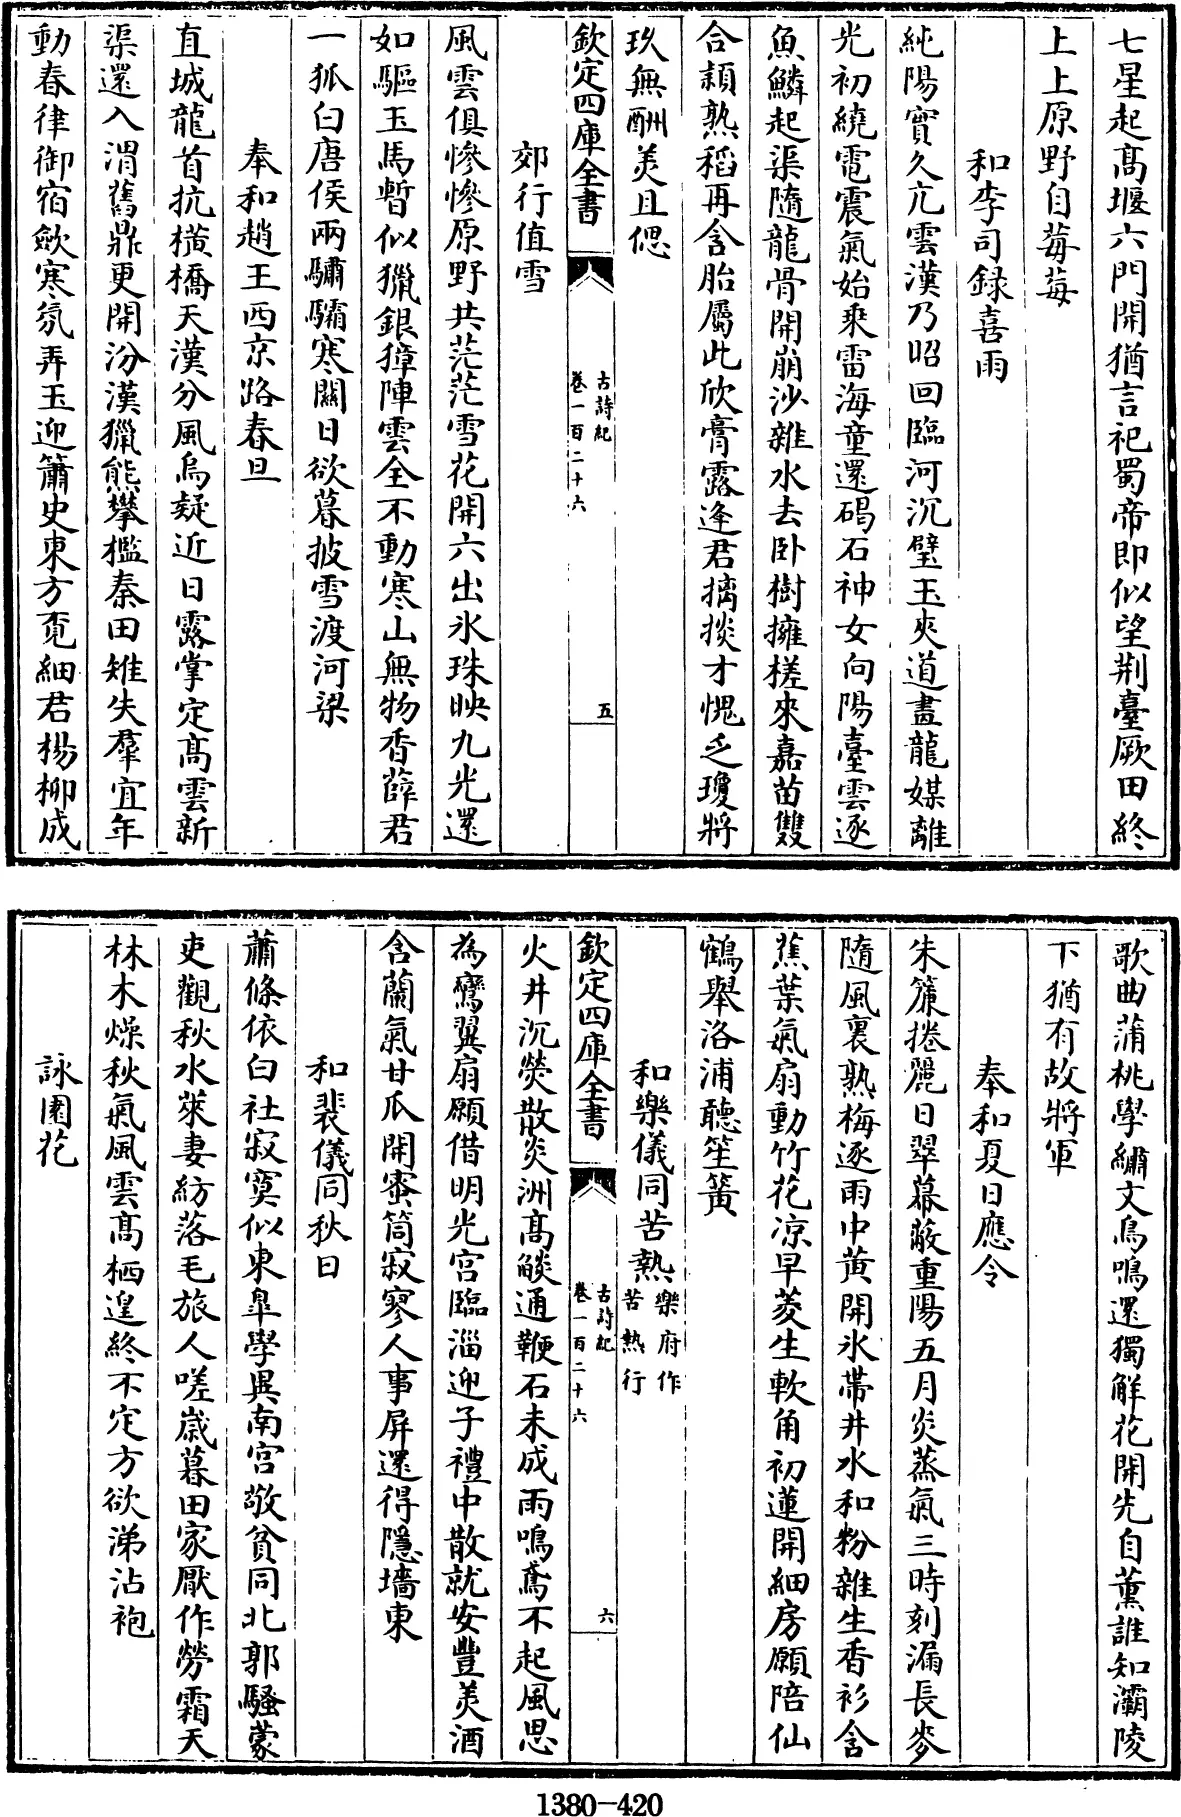 七星起髙堰六門開猶言祀蜀帝即似望荆臺厥田終
上上原野自莓莓
和李司録喜雨
純陽實久亢雲漢乃昭回臨河沉璧玉夾道畫龍媒離
光初繞電震氣始乘雷海童還碣石神女向陽臺雲逐
魚鱗起渠隨龍骨開崩沙雜水去卧樹擁槎來嘉苗雙
合穎熟稻再含胎屬此欣膏露逢君摛掞才愧乏瓊將
玖無酬美且偲
欽定四庫全書
古詩紀
卷一百二十六
五
郊行值雪
風雲俱慘慘原野共茫茫雪花開六出氷珠映九光還
如驅玉馬暫似獵銀獐陣雲全不動寒山無物香薛君
一狐白唐侯兩驌驦寒關日欲暮披雪渡河梁
奉和趙王西京路春旦
直城龍首抗橫橋天漢分風烏疑近日露掌定髙雲新
渠還入渭舊鼎更開汾漢獵熊攀檻秦田雉失羣宜年
動春律御宿歛寒氛弄玉迎簫史東方覔細君楊柳成
歌曲蒲桃學繡文鳥鳴還獨解花開先自薰誰知灞陵
下猶有故將軍
奉和夏日應令
朱簾捲麗日翠幕蔽重陽五月炎蒸氣三時刻漏長麥
隨風裏熟梅逐雨中黄開氷帶井水和粉雜生香衫含
蕉葉氣扇動竹花凉早菱生軟角初蓮開細房願陪仙
鶴舉洛浦聽笙簧
和樂儀同苦熱樂府作苦熱行
欽定四庫全書
古詩紀
卷一百二十六
六
火井沉熒散炎洲髙燄通鞭石未成雨鳴鳶不起風思
為鸞翼扇願借明光宫臨淄迎子禮中散就安豐美酒
含蘭氣甘瓜開蜜筒寂寥人事屏還得隱墻東
和裴儀同秋日
蕭條依白社寂寞似東臯學異南宫敬貧同北郭騷蒙
吏觀秋水萊妻紡落毛旅人嗟歲暮田家厭作勞霜天
林木燥秋氣風雲髙栖遑終不定方欲涕沾袍
詠園花
1380-420